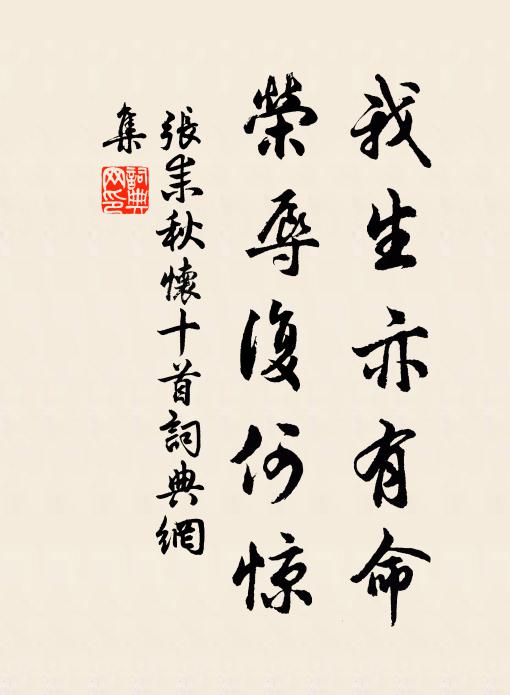 我生亦有命
榮辱復何惊
張耒秋懷十首詞典網
集
詞典
网印